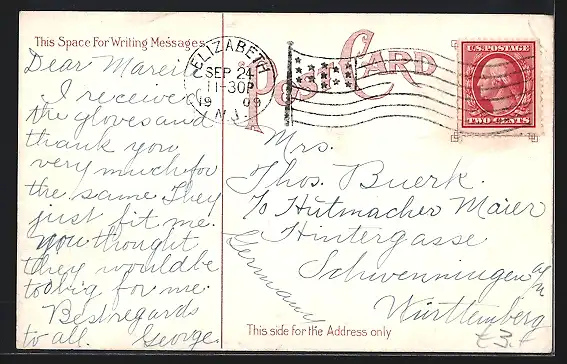 This Space For Writing Messages
Dear Marei
I receive
the gloves and
thank you
very much for
the same They
just fit me.
You thought
they would be
to big for me.
Best regards
to all. George.
ELIZABETH
SEP 24
11-30P
19 09
N.J.
POST CARD
U.S. POSTAGE
TWO CENTS
Mrs.
Thos. Buerk.
c/o Hutmacher Maier
Hintergasse
Schwenningen a/n
Württemberg
Germany
This side for the Address only